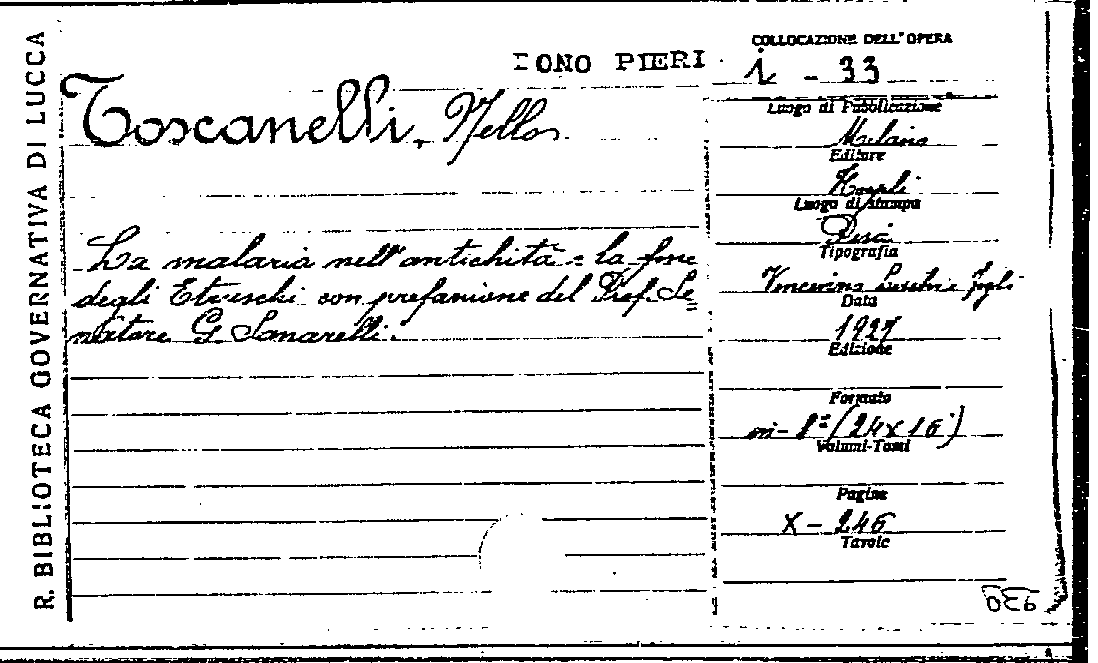 R. BIBLIOTECA GOVERNATIVA DI LUCCA
DONO PIERI
Toscanelli, Nello
La malaria nell'antichità e la fine
degli Etruschi con prefazione del Prof. Se=
natore G. Sanarelli.
COLLOCAZIONE DELL'OPERA
i - 33
Luogo di Pubblicazione
Milano
Editore
Hoepli
Luogo di stampa
Pisa
Tipografia
Data
1927
Edizione
Formato
in-8º (24x16)
Volumi-Tomi
Pagine
X - 246
Tavole